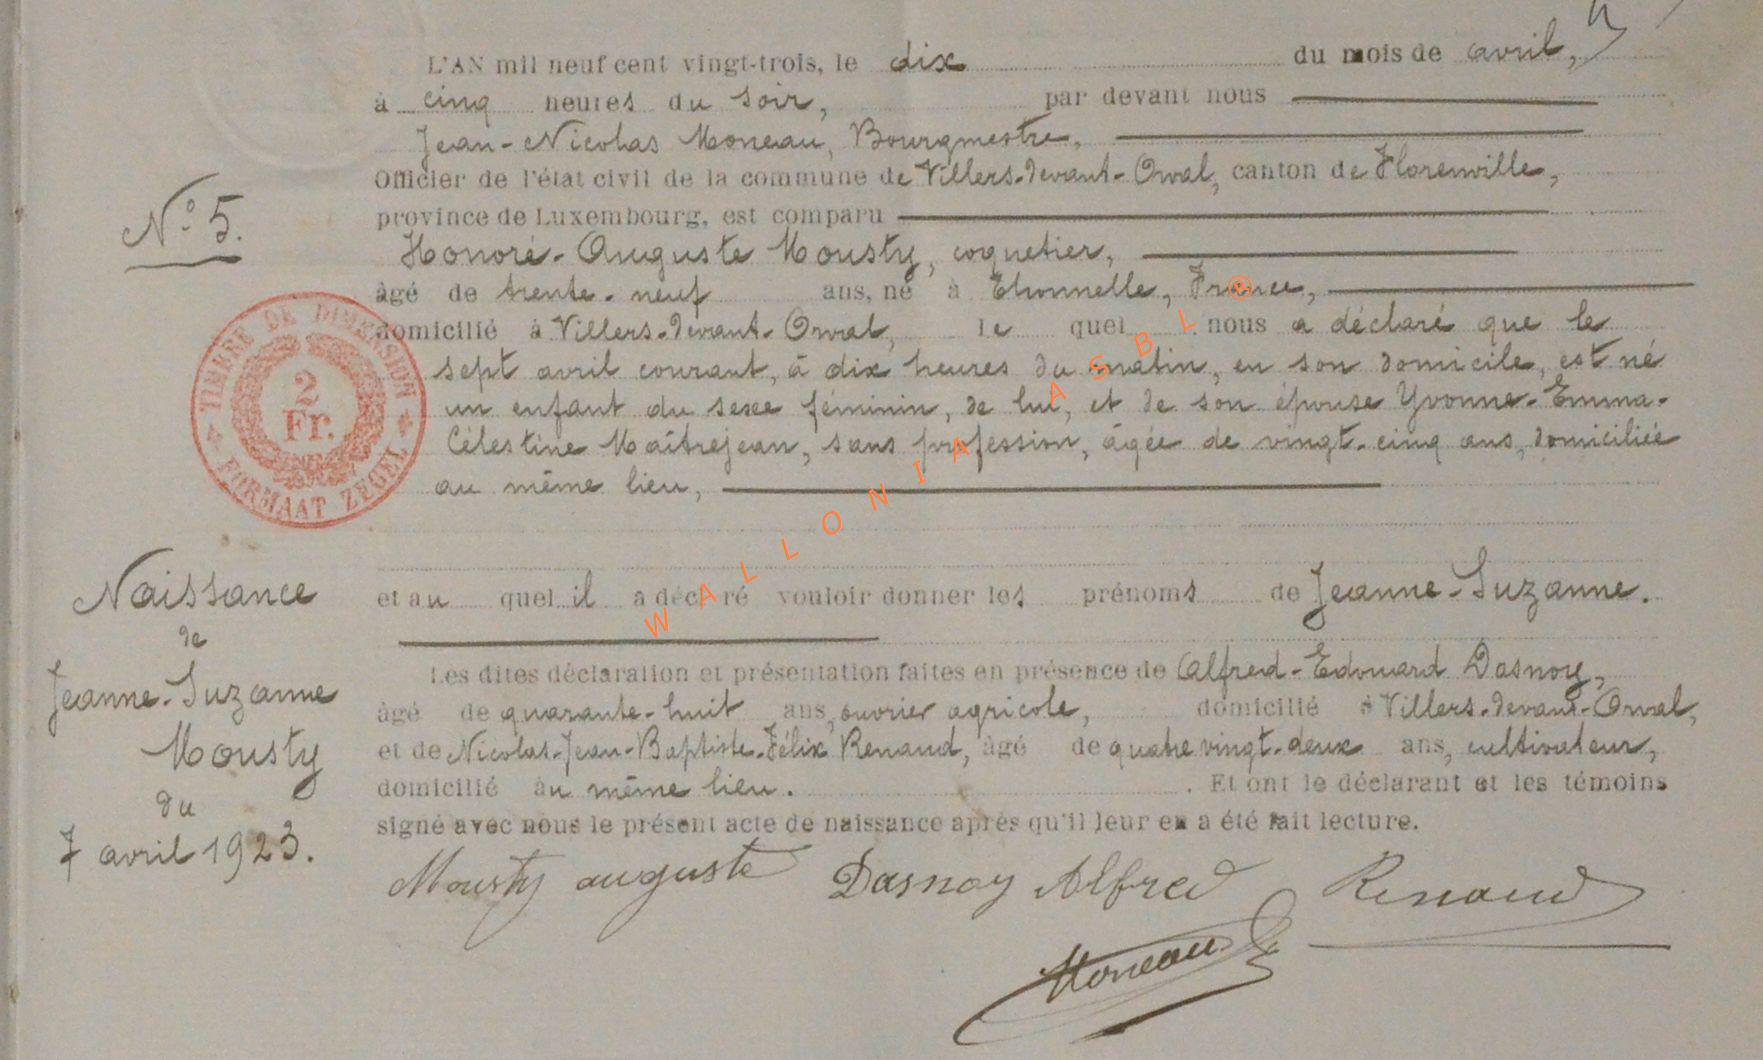 L'AN mil neuf cent vingt-trois, le dix du mois de avril,
à cinq heures du soir, par devant nous
Jean-Nicolas Moneau, Bourgmestre,
Officier de l'état civil de la commune de Villers-devant-Orval, canton de Florenville,
province de Luxembourg, est comparu
Honoré-Auguste Mousty, coquetier,
âgé de trente-neuf ans, né à Thonnelle, France,
domicilié à Villers-devant-Orval, le quel nous a déclaré que le
sept avril courant, à dix heures du matin, en son domicile, est né
un enfant du sexe féminin, de lui, et de son épouse Yvonne-Emma-
Célestine Maîtrejean, sans profession, âgée de vingt-cinq ans, domiciliée
au même lieu,
et au quel il a déclaré vouloir donner les prénoms de Jeanne-Suzanne.
Les dites déclaration et présentation faites en présence de Alfred-Edouard Dasnoy,
âgé de quarante-huit ans, ouvrier agricole, domicilié à Villers-devant-Orval,
et de Nicolas-Jean-Baptiste-Félix Renaud, âgé de quatre vingt-deux ans, cultivateur,
domicilié au même lieu. Et ont le déclarant et les témoins
signé avec nous le présent acte de naissance après qu'il leur en a été fait lecture.
Mousty auguste Dasnoy Alfred Renaud
Moneau
N° 5.
TIMBRE DE DIMENSION
2
Fr.
FORMAAT ZEGEL
Naissance
de
Jeanne-Suzanne
Mousty
du
7 avril 1923.
WALLONIA ASBL ®